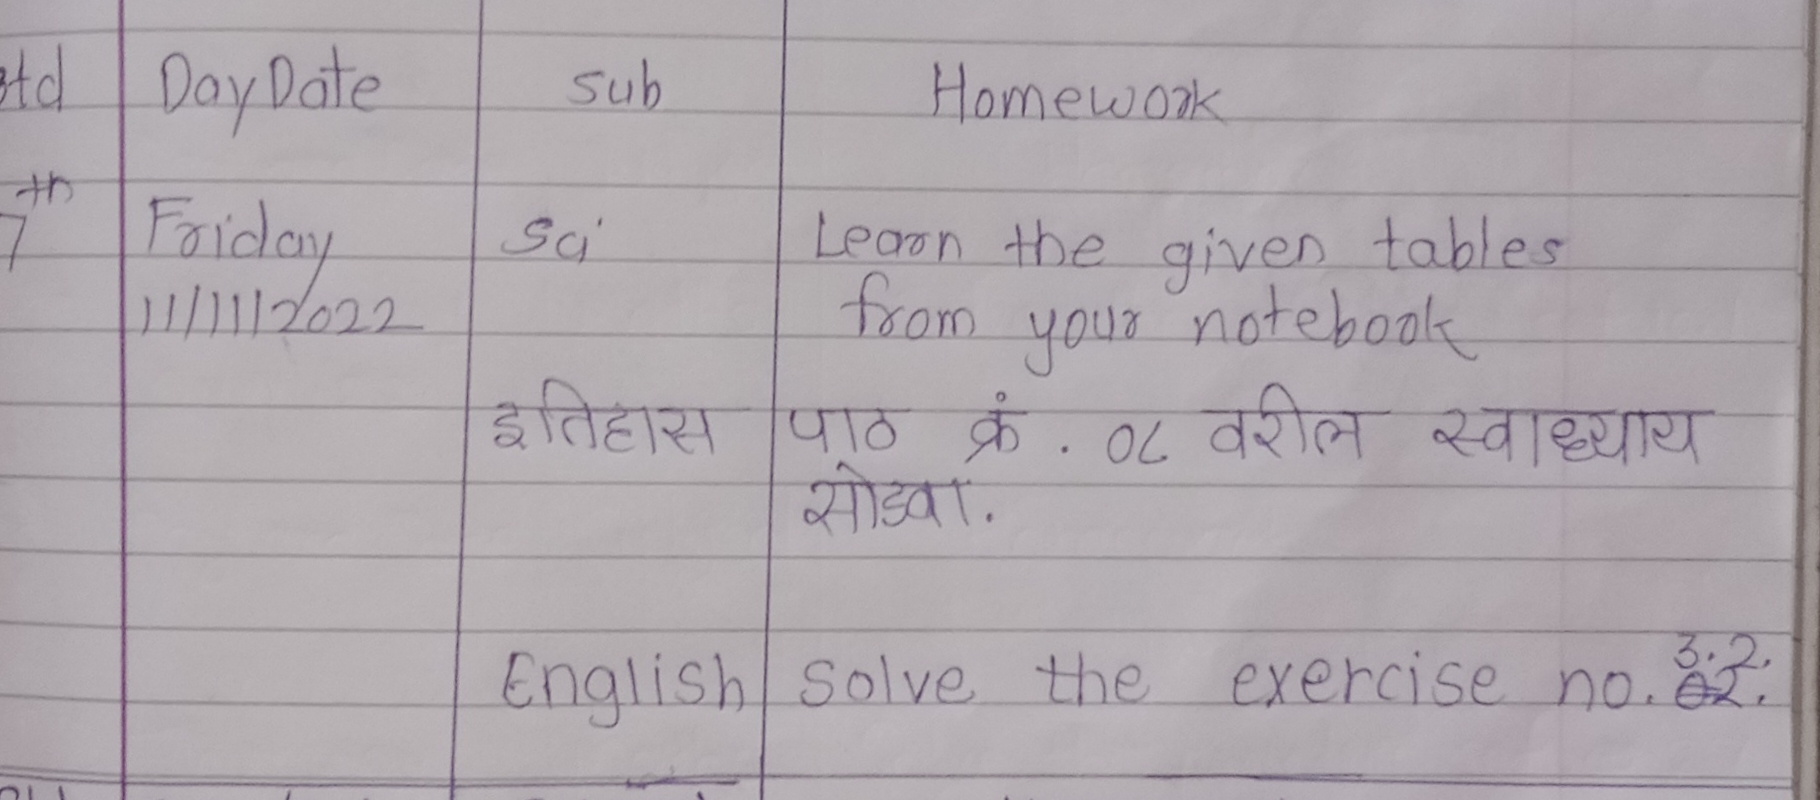 Std Day Date Sub Homework
7th Friday Sci Learn the given tables
11/11/2022 from your notebook
इतिहास पाठ क्रं. ०८ वरील स्वाध्याय
सोडवा.
3.2.
English Solve the exercise no. 02.